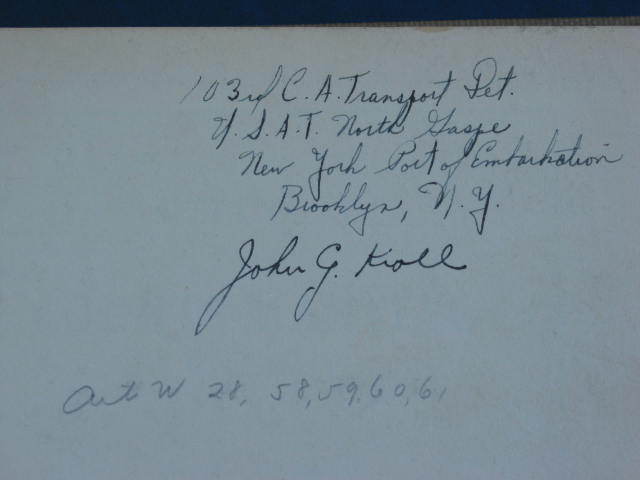 103rd C. A. Transport Det.
U. S. A. T. North Gaspe
New York Port of Embarkation
Brooklyn, N. Y.
John G. Kroll
W 28, 58, 59, 60, 61